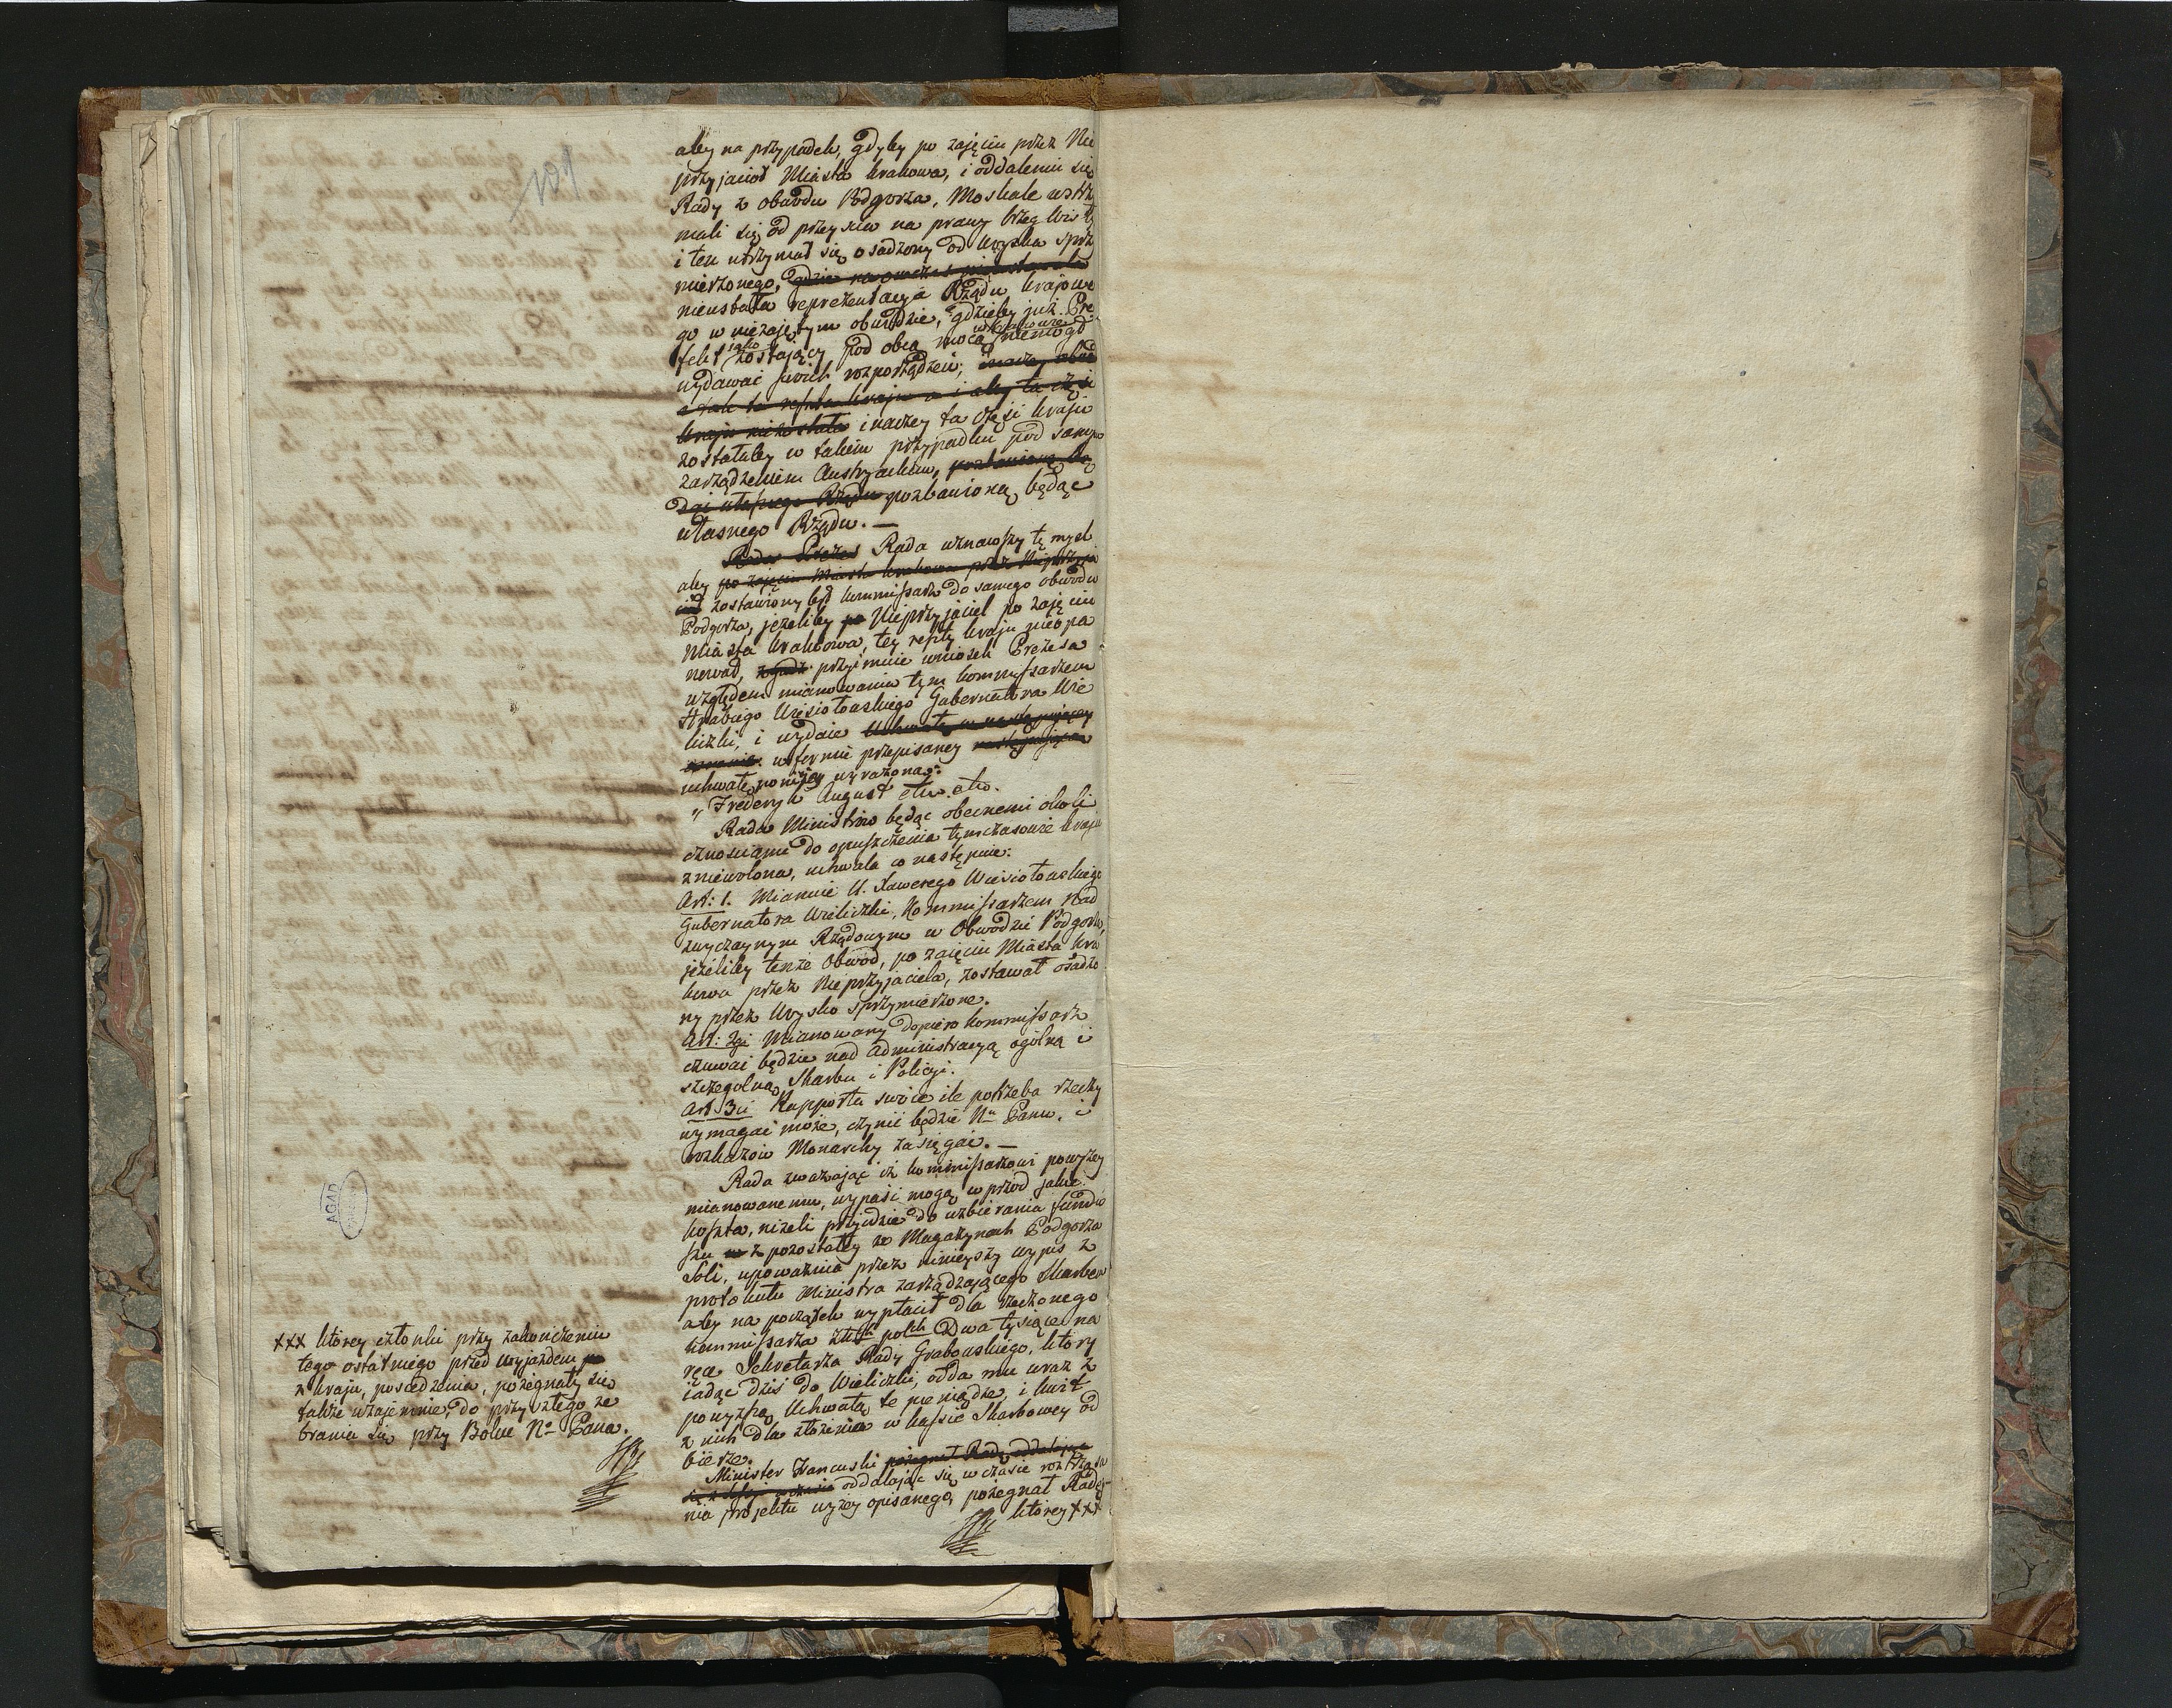 101
aby na przypadek, gdyby po zajęciu przez Nie
przyjaciół Miasta Krakowa, i oddaleniu się
Rady z obwodu Podgorza, Moskale wstrzy
mali się od przeyscia na prawy brzeg Wisły
i ten utrzymał się osadzony od woyska sprzy
mierzonego, gdzie
nieustała reprezentacya Rządu krajowe
go w niezajętym obwodzie, gdzieby już Pre
fekt jako zostający pod obcą mocą niemogł
wydawać swoich rozporządzeń,
a i aby ta część
kraju inaczey ta część kraju
zostałaby w takim przypadku pod samym
zarządzeniem Austryackim,
pozbawioną będąc
własnego Rządu. —
Rada Prezes Rada uznawszy tę mysl
aby po zajęciu Miasta Krakowa przez Nieprzyja
ciół zostawiony był kommissarz do samego obwodu
Podgorza, jeżeliby Nieprzyjaciel po zajęciu
Miasta Krakowa, tey reszty kraju nieopa
nował, przyimuie wniosek Prezesa
względem mianowania tym kommissarzem
Hrabiego Wiesiołowskiego Gubernatora Wie
liczki, i wydaie Uchwałę w następuiącey
w formie przepisaney następuiącą
uchwałę poniżey wyrażoną:
„Frederyk August etc. etc.
Rada Ministrów będąc obecnemi okoli
cznosciami do opuszczenia tymczasowie kraju
zniewolona, uchwala co następuie:
Art: 1. Mianuie U. Xawerego Wiesiołowskiego
Gubernatora Wieliczki, Kommissarzem Nad
zwyczaynym Rządowym w Obwodzie Podgorza,
jeżeliby tenże Obwód, po zajęciu Miasta Kra
kowa przez Nieprzyjaciela, zostawał osadzo
ny przez woysko sprzymierzone.
Art: 2gi Mianowany dopiero kommissarz
czuwać będzie nad administracyą ogólną i
szczegolną Skarbu i Policyi.
Art 3ci Rapporta swoie ile potrzeba rzeczy
wymagać może, czynić będzie Nu Panu, i
rozkazów Monarchy zasięgać. —
Rada zważając iż kommissarzowi powyżey
mianowanemu, wypaść mogą wprzód jakie
koszta, niżeli przyidzie do uzbierania fundu
szu z pozostałey w Magazynach Podgorza
Soli, upoważnia przez ninieyszy wypis z
protokułu Ministra zarządzającego Skarbem
aby na początek wypłacił dla rzeczonego
kommissarza złłch polch Dwa tysiące na
ręce Sekretarza Rady Grabowskiego, który
iadąc dziś do Wieliczki, odda mu wraz z
powyższą Uchwałą te pieniądze, i kwit
z nich dla złożenia w kassie Skarbowey od
bierze.
Minister Francuski pożegnał Radę oddalając
się oddalając się w czasie roztrząsa
nia projektu wyżey opisanego, pożegnał Radę,
którey xxx
xxx którey członki przy zakończeniu
tego ostatniego przed wyjazdem
z kraju, posiedzenia, pożegnały się
także wzajemnie, do przyszłego ze
brania się przy Boku No Pana.
AGAD